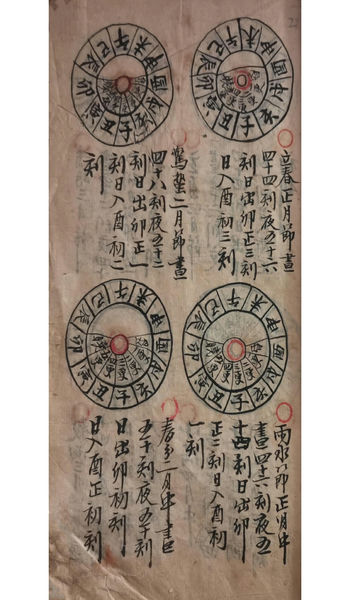 午未申酉戌亥子丑寅卯辰巳
立春正月節晝
四十四刻夜五十六
刻日出卯正三刻
日入酉初三刻
午未申酉戌亥子丑寅卯辰巳
驚蟄二月節晝
四十八刻夜五十二
刻日出卯正一
刻日入酉初二
刻
午未申酉戌亥子丑寅卯辰巳
雨水節正月中
晝四十六刻夜五
十四刻日出卯
正二刻日入酉初
一刻
午未申酉戌亥子丑寅卯辰巳
春分二月中晝
五十刻夜五十刻
日出卯初刻
日入酉正初刻